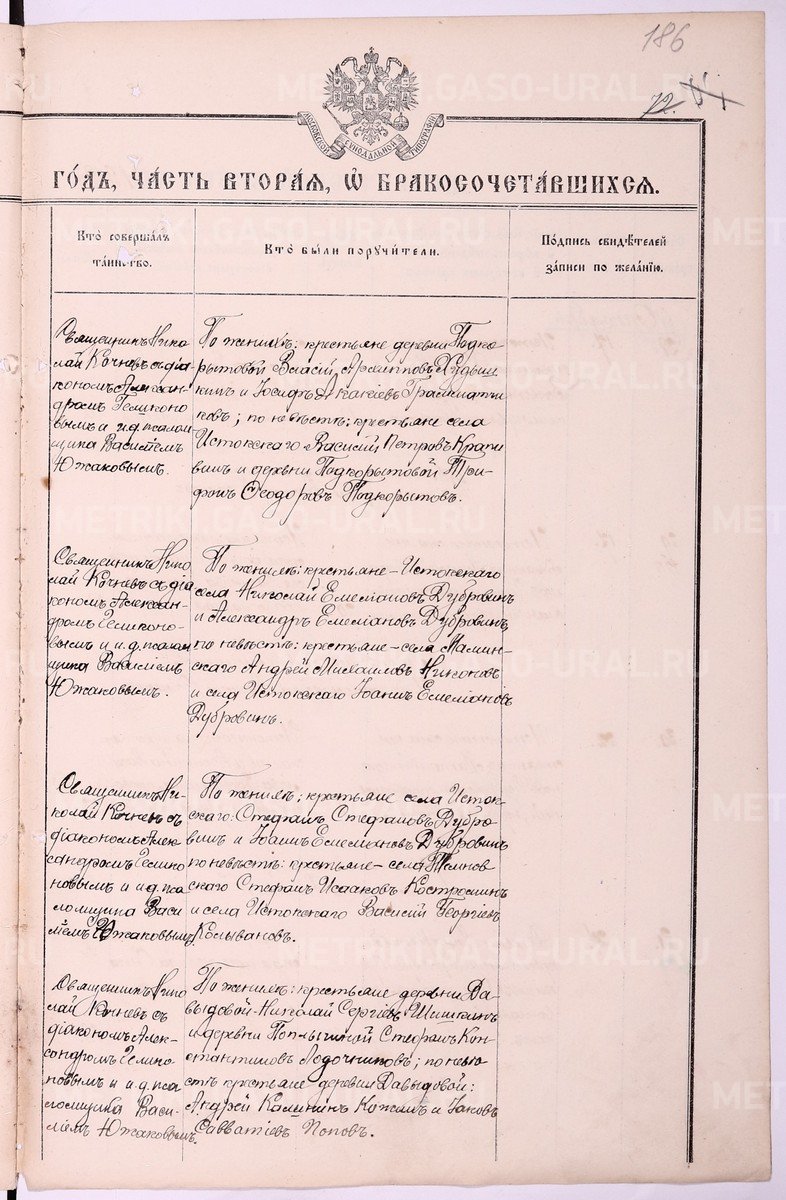 186
72.
МОСКОВСКОЙ СѴНОДАЛЬНОЙ ТИПОГРАФІИ
ГО́ДЪ, ЧА́СТЬ ВТОРА́Я, Ѡ҆ БРАКОСОЧЕТА́ВШИХСЯ.
Кто̀ соверша́лъ
та́инство.
Кто̀ бы́ли порꙋчи́тели.
По́дпись свидѣ́телей
за́писи по жела́нію.
Священникъ Нико-
лай Кочневъ съ діа-
кономъ Алексан-
дромъ Геликоно-
вымъ и и.д. псалом-
щика Василіемъ
Южаковымъ.
По женихѣ: крестьяне деревни Подко-
рытовой Власій Архиповъ
и Іосифъ Акакіевъ
по невѣстѣ: крестьяне села
Истокскаго Василій Петровъ Крапи-
винъ и деревни Подкорытовой Три-
фонъ Ѳеодоровъ Подкорытовъ.
Священникъ Нико-
лай Кочневъ съ діа-
кономъ Алексан-
дромъ Геликоно-
вымъ и и.д. псалом-
щика Василіемъ
Южаковымъ.
По женихѣ: крестьяне – Истокскаго
села Николай Емеліановъ Дубровинъ
и Александръ Емеліановъ Дубровинъ
по невѣстѣ: крестьяне – села Мамин-
скаго Андрей Михаиловъ Никоновъ
и села Истокскаго Іоаннъ Емеліановъ
Дубровинъ.
Священникъ Ни-
колай Кочневъ съ
діакономъ Алек-
сандромъ Гелико-
новымъ и и.д. пса-
ломщика Васи-
ліемъ Южаковымъ.
По женихѣ: крестьяне села Исток-
скаго: Стефанъ Стефановъ Дубро-
винъ и Іоаннъ Емеліановъ Дубровинъ
по невѣстѣ: крестьяне – села
скаго Стефанъ Исааковъ Костроминъ
и села Истокскаго Василій Георгіевъ
Колывановъ.
Священникъ Нико-
лай Кочневъ съ
діакономъ Алек-
сандромъ Гелико-
новымъ и и.д. пса-
ломщика Васи-
ліемъ Южаковымъ.
По женихѣ: крестьяне деревни Да-
выдовой – Николай Сергіевъ Шишкинъ
и деревни Стефанъ Кон-
стантиновъ Лодочниковъ; по невѣ-
стѣ крестьяне деревни Давыдовой:
Андрей Калининъ Кожинъ и Іаковъ
Савватіевъ Поповъ.
METRIKI.GASO-URAL.RU